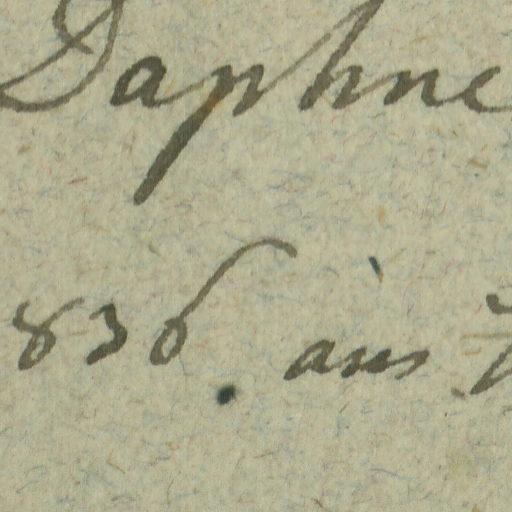 Daphne
836. aus